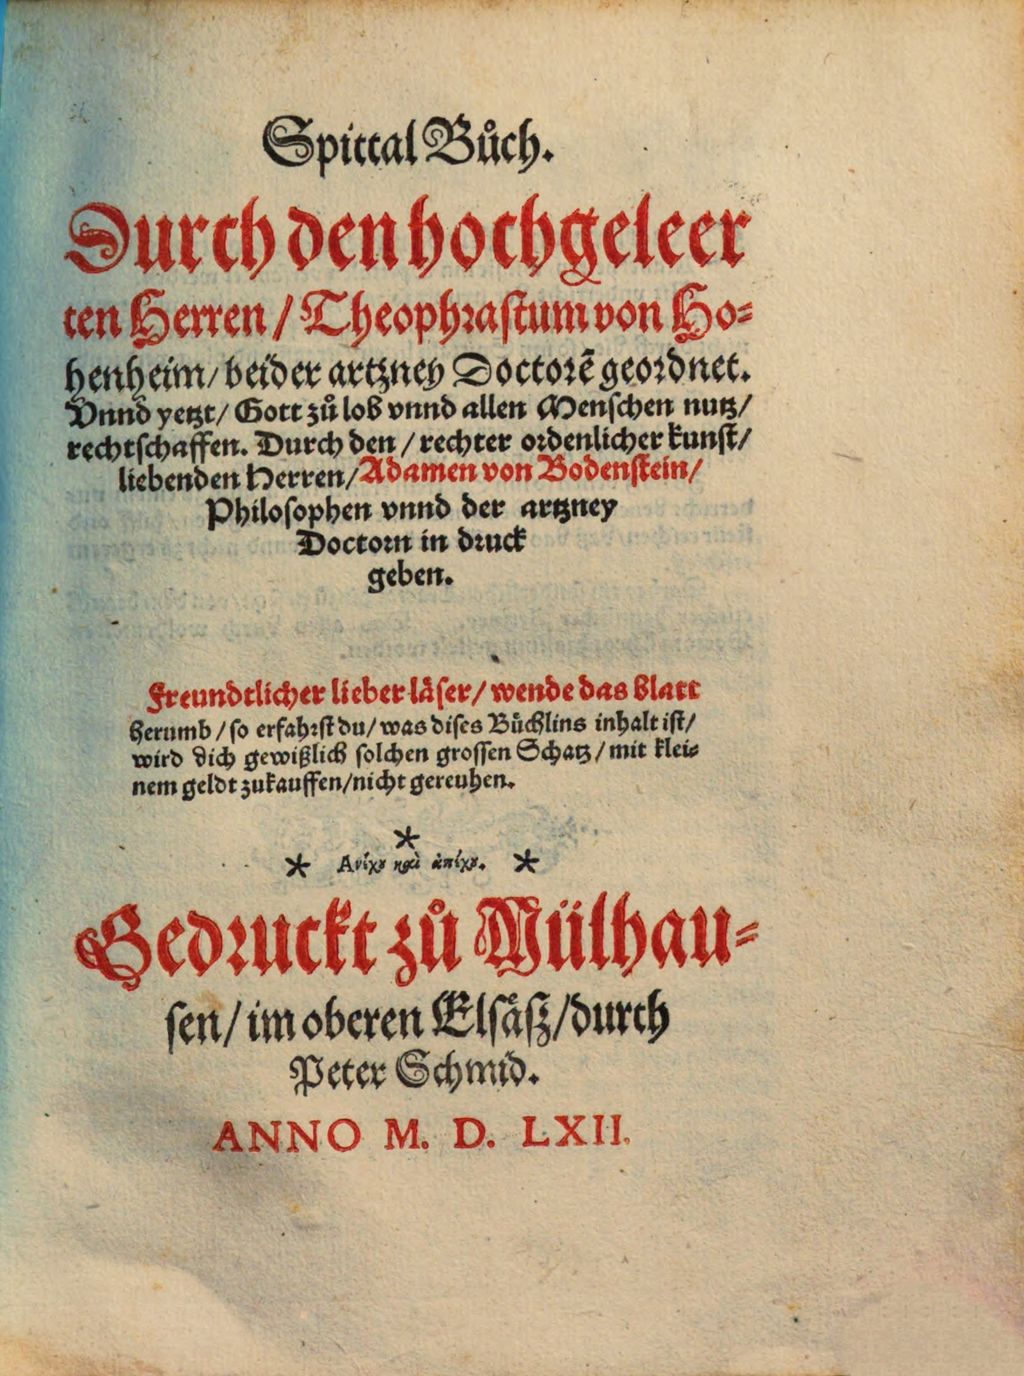 Spittal Bůch.
Durch den hochgeleer
ten Herren / Theophrastum von Ho⸗
henheim / beider artzney Doctorẽ geordnet.
Vnnd yetzt / Gott zů lob vnnd allen Menschen nutz /
rechtschaffen. Durch den / rechter ordenlicher kunst /
liebenden Herren / Adamen von Bodenstein /
Philosophen vnnd der artzney
Doctorn in druck
geben.
Freundtlicher lieber läser / wende das blatt
herumb / so erfahrst du / was dises Bůchlins inhalt ist /
wird dich gewißlich solchen grossen Schatz / mit klei⸗
nem geldt zukauffen / nicht gereuhen.
*
* Ἀνίχȣ καὶ ἀπίχȣ. *
Gedruckt zů Mülhau⸗
sen / im oberen Elsäsz / durch
Peter Schmid.
ANNO M. D. LXII.